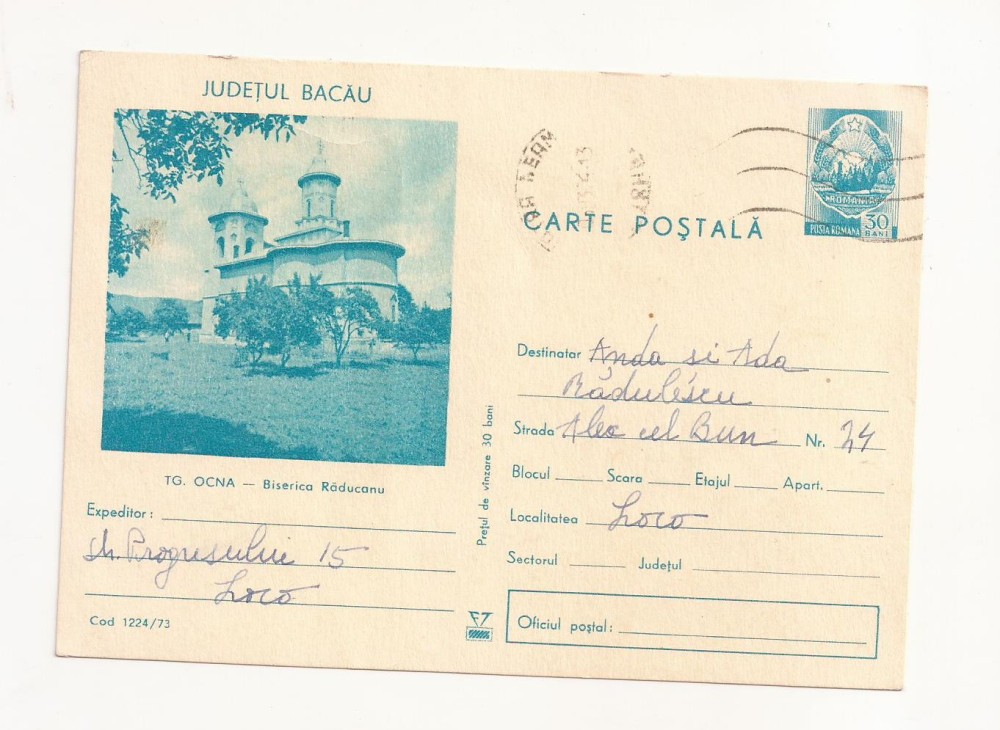 JUDEȚUL BACĂU
TG. OCNA — Biserica Răducanu
Expeditor:
str. Progresului 15
Loco
Cod 1224/73
Prețul de vînzare 30 bani
CARTE POȘTALĂ
ROMÂNIA
POSTA ROMANA 30 BANI
Destinatar Anda si Ada
Rădulescu
Strada Alex cel Bun Nr. 24
Blocul Scara Etajul Apart.
Localitatea Loco
Sectorul Județul
Oficiul poștal: